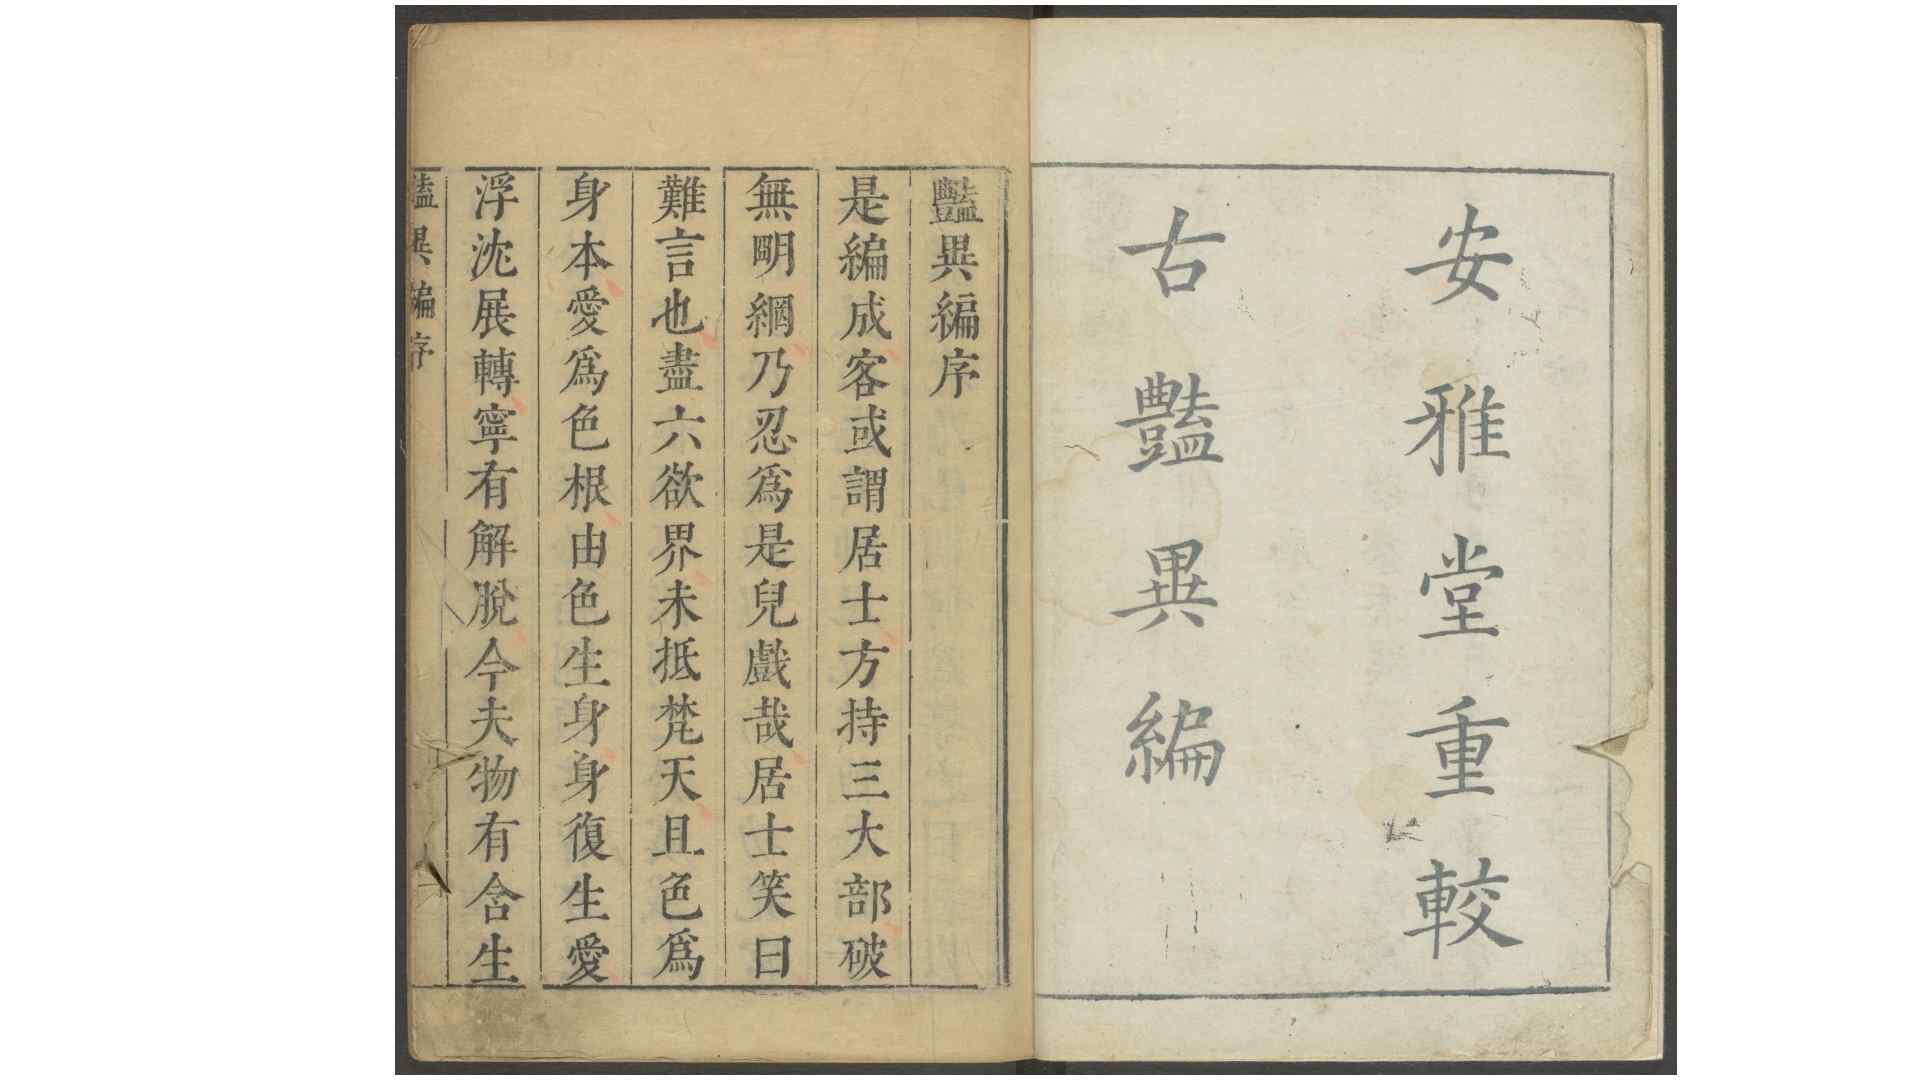 安雅堂重較
古豔異編
豔異編序
是編成客或謂居士方持三大部破
無明網乃忍爲是兒戲哉居士笑曰
難言也盡六欲界未抵梵天且色爲
身本愛爲色根由色生身身復生愛
浮沈展轉寧有解脫今夫物有含生
豔異編序